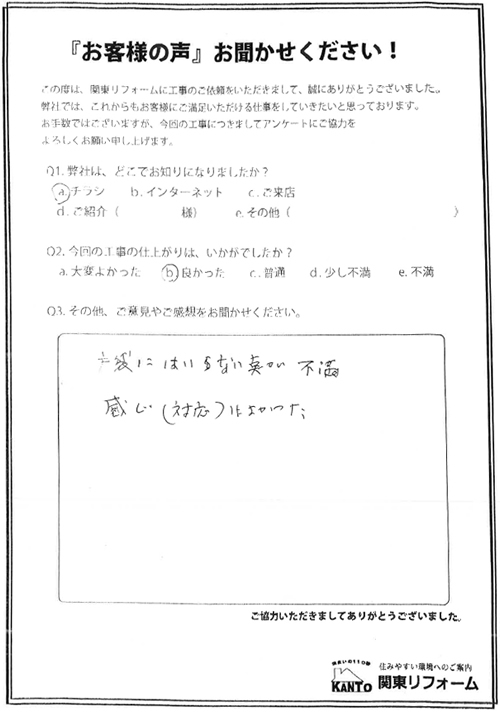 『お客様の声』お聞かせください！
この度は、関東リフォームに工事のご依頼をいただきまして、誠にありがとうございました。
弊社では、これからもお客様にご満足いただける仕事をしていきたいと思っております。
お手数ではございますが、今回の工事につきましてアンケートにご協力を
よろしくお願い申し上げます。
Q1. 弊社は、どこでお知りになりましたか？
a. チラシ b. インターネット c. ご来店
d. ご紹介（ 様） e. その他（ ）
Q2. 今回の工事の仕上がりは、いかがでしたか？
a. 大変よかった b. 良かった c. 普通 d. 少し不満 e. 不満
Q3. その他、ご意見やご感想をお聞かせください。
不満
感じ（対応）はよかった
ご協力いただきましてありがとうございました。
住まいの110番
KANTO
住みやすい環境へのご案内
関東リフォーム